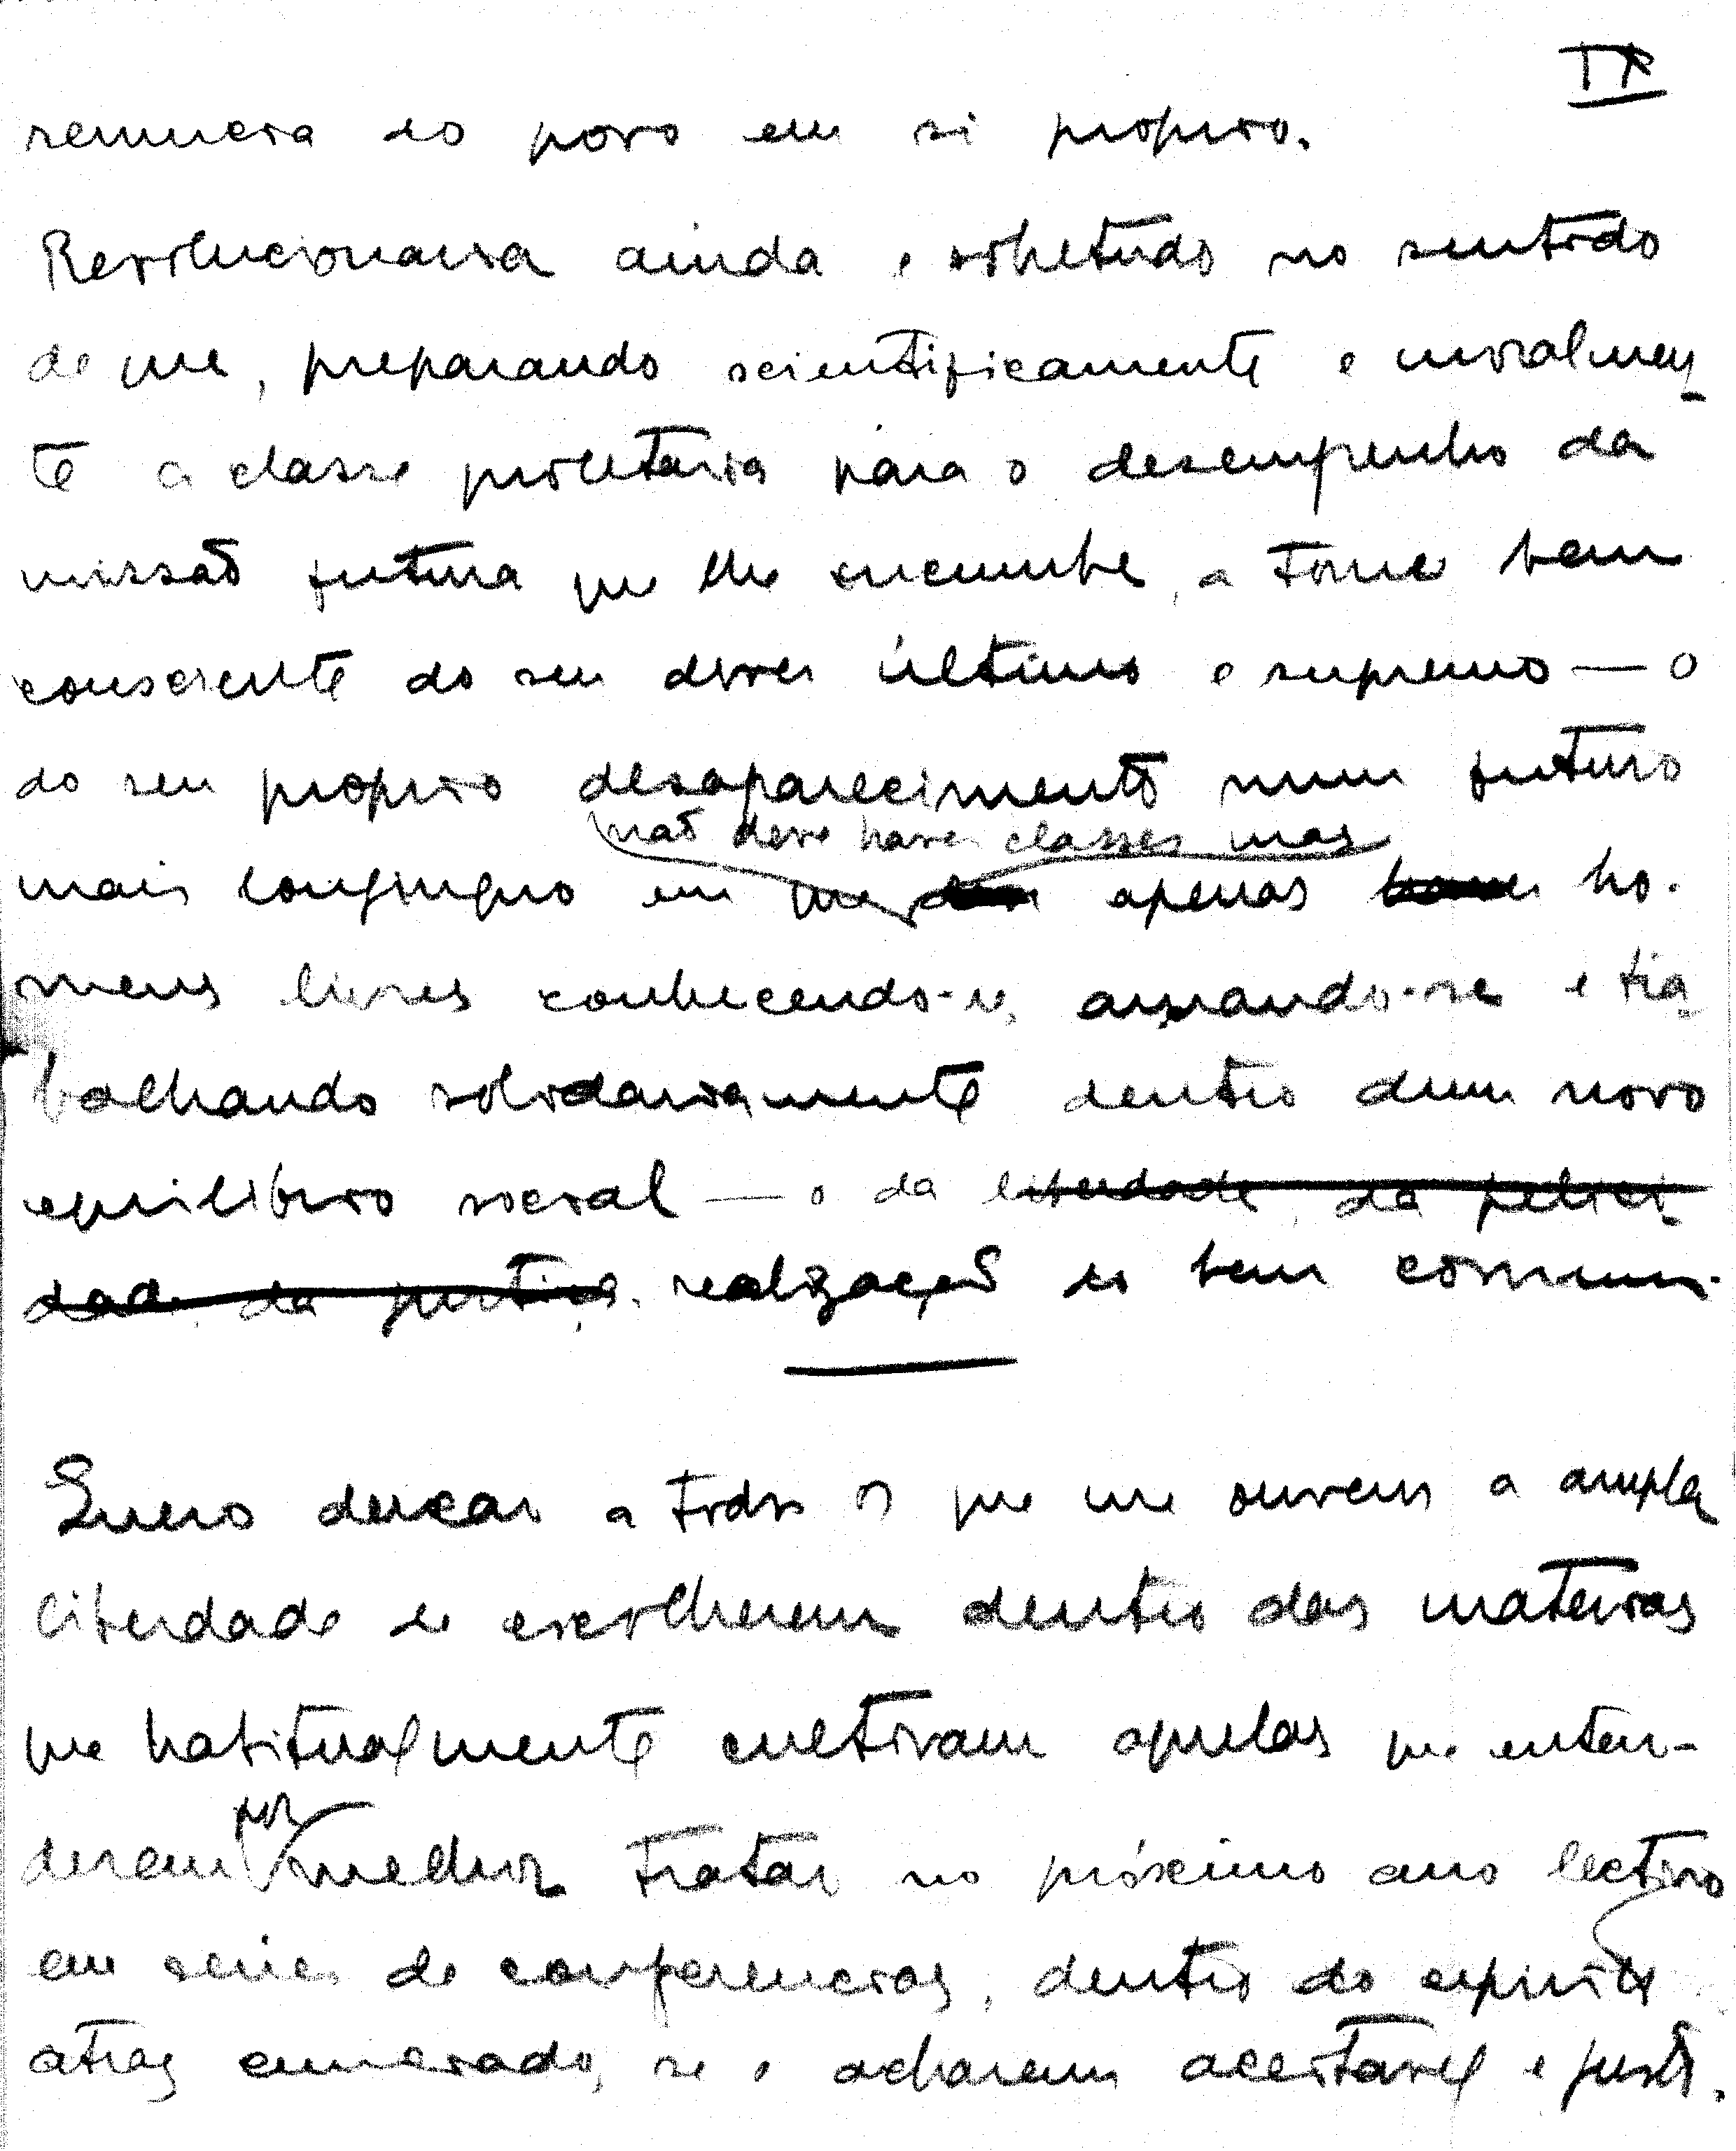 IX
renuncia do povo em si proprio.
Revolucionaria ainda e sobretudo no sentido
de que, preparando scientificamente e moralmen-
te a classe proletaria para o desempenho da
missão futura que lhe incumbe, a torne bem
consciente do seu dever último e supremo — o
do seu proprio desaparecimento num futuro
não deve haver classes mas
mais longinquo em que apenas ho-
mens livres conhecendo-se, amando-se e tra-
balhando solidariamente dentro dum novo
equilibrio social — o da liberdade, da felici-
dade, da justiça. realização do bem comum.
Quero deixar a todos os que me ouvem a ampla
liberdade de escolherem dentro das materias
que habitualmente cultivam aquelas que enten-
por
derem melhor tratar no próximo ano lectivo
em series de conferencias, dentro do espirito
atraz enunciado, se o acharem aceitavel e justo.